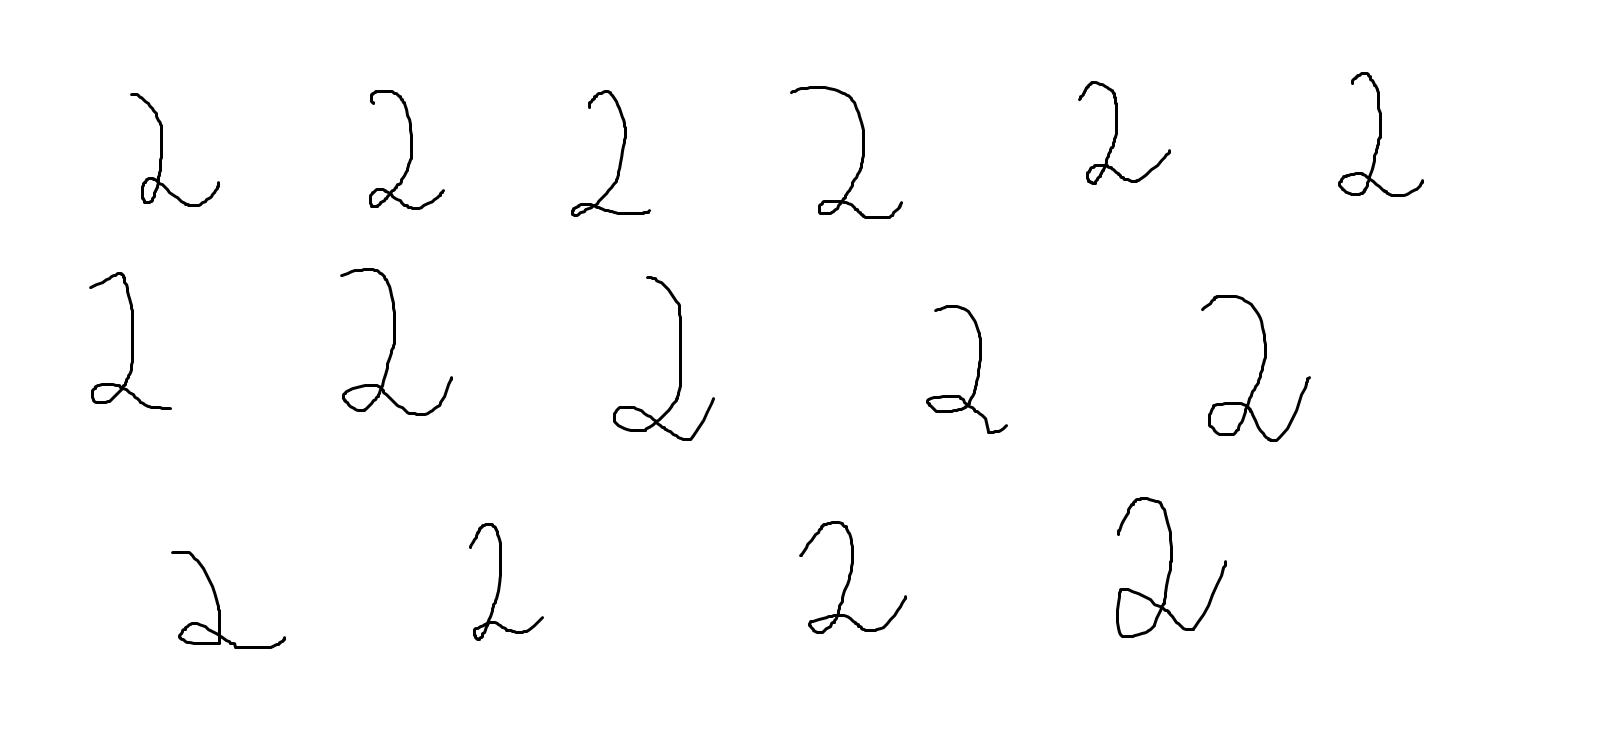 2 2 2 2 2 2
2 2 2 2 2
2 2 2 2